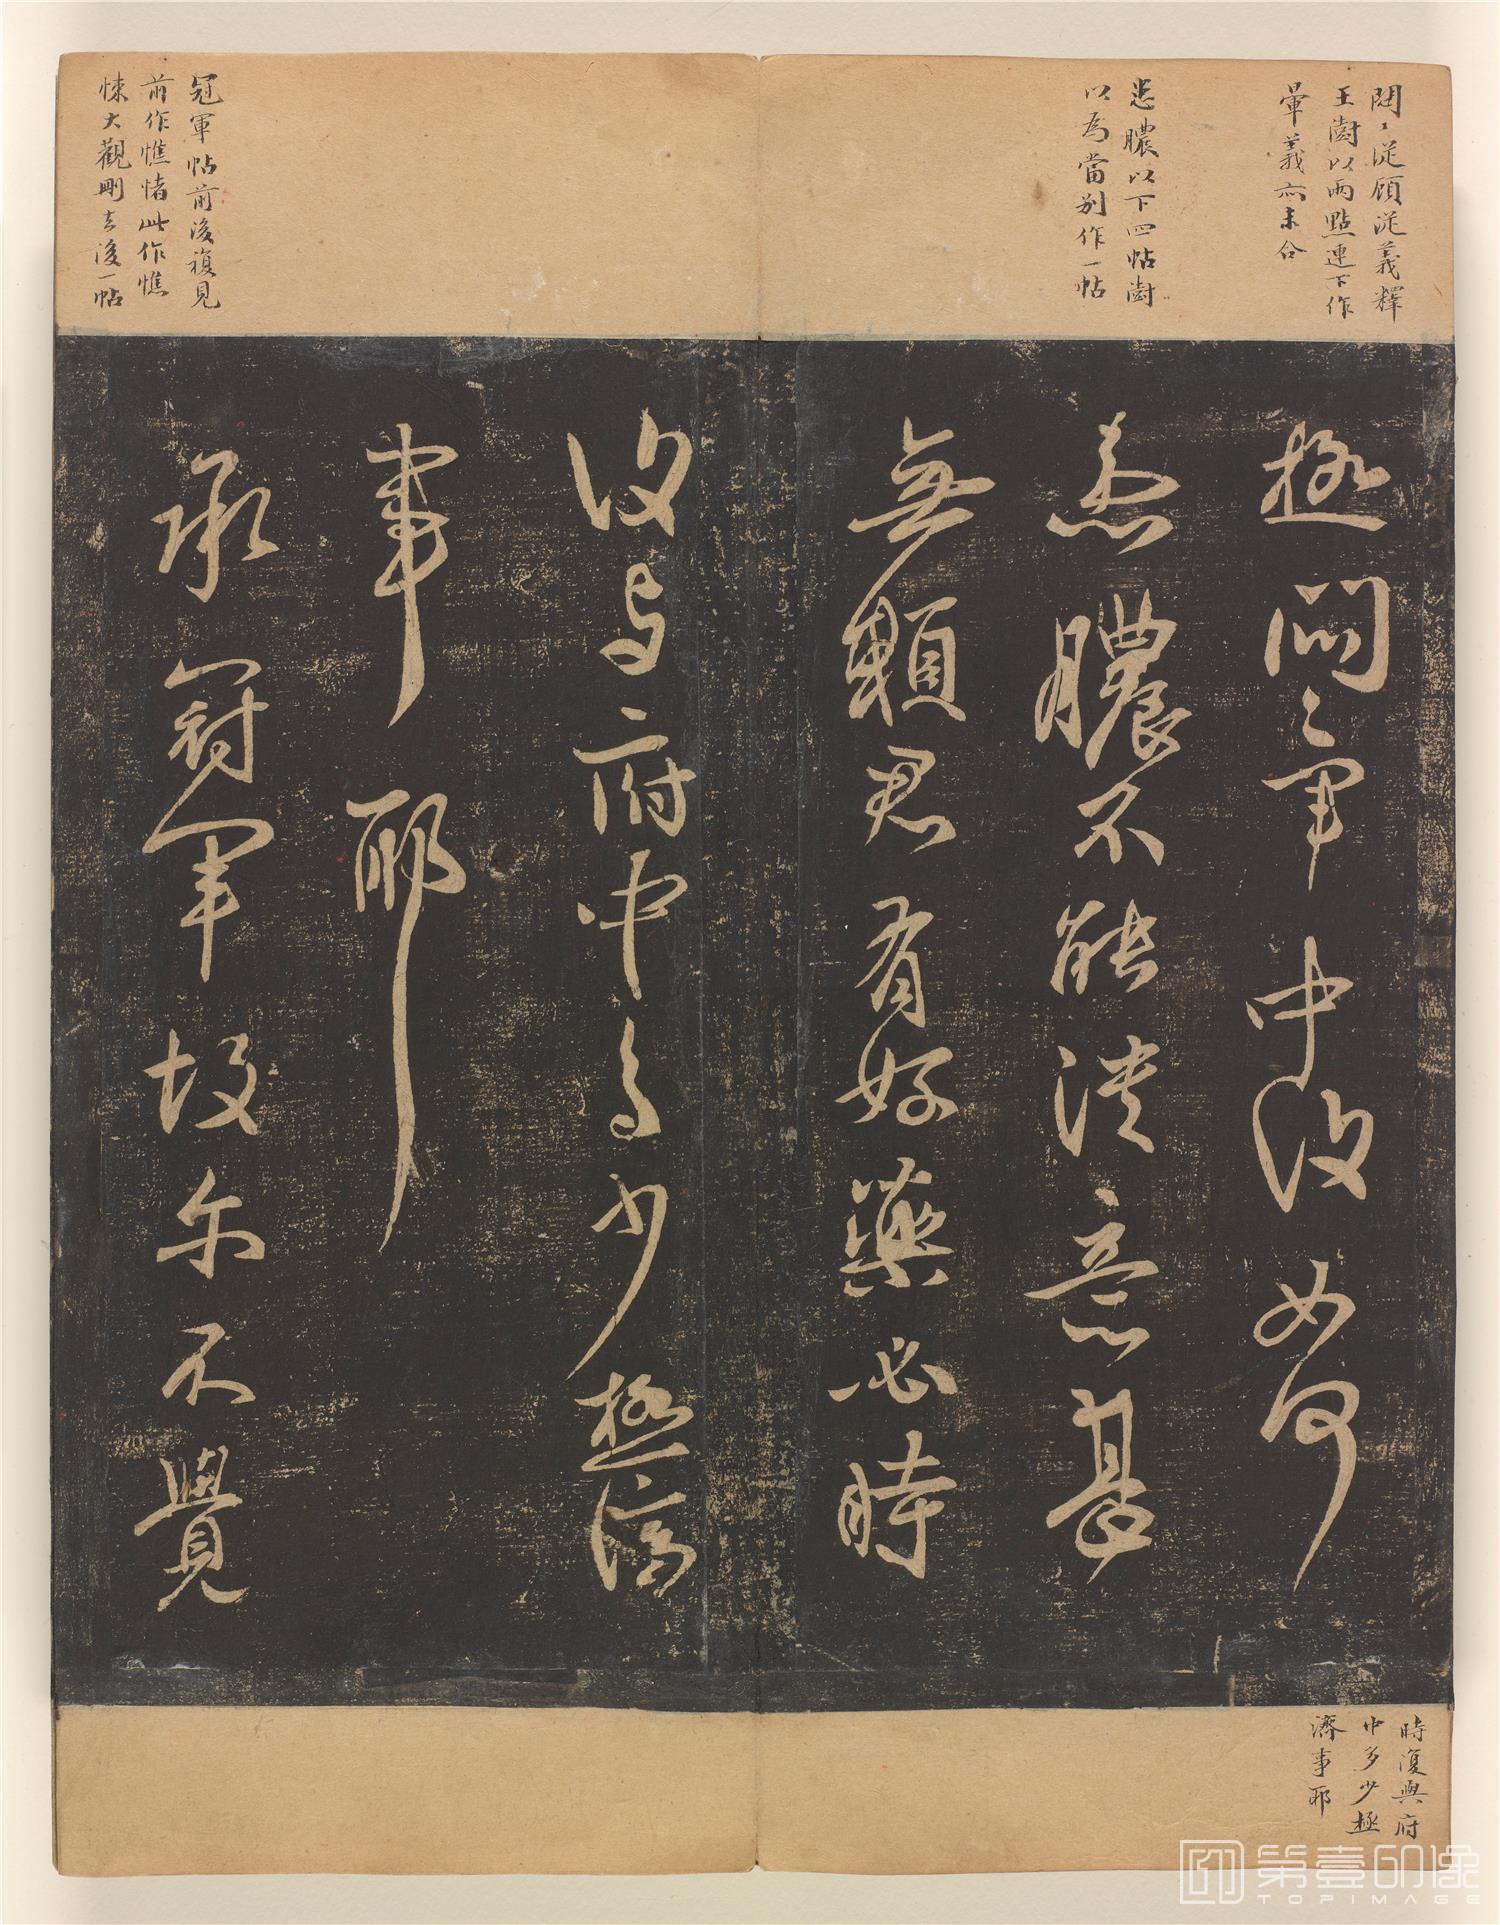 閟〻從顧從義釋
王澍以兩點連下作
暈義亦未合
恚膿以下四帖澍
以為當別作一帖
冠軍帖前後複見
前作憔悴此作憔
悚大觀刪去後一帖
極悶〻軍中後如何
恚膿不能淡意甚
無賴君有好藥必時
復與府中多少極濟
事耶
承冠軍故尔不覺
時復與府
中多少極
濟事耶
第壹印像
TOPIMAGE